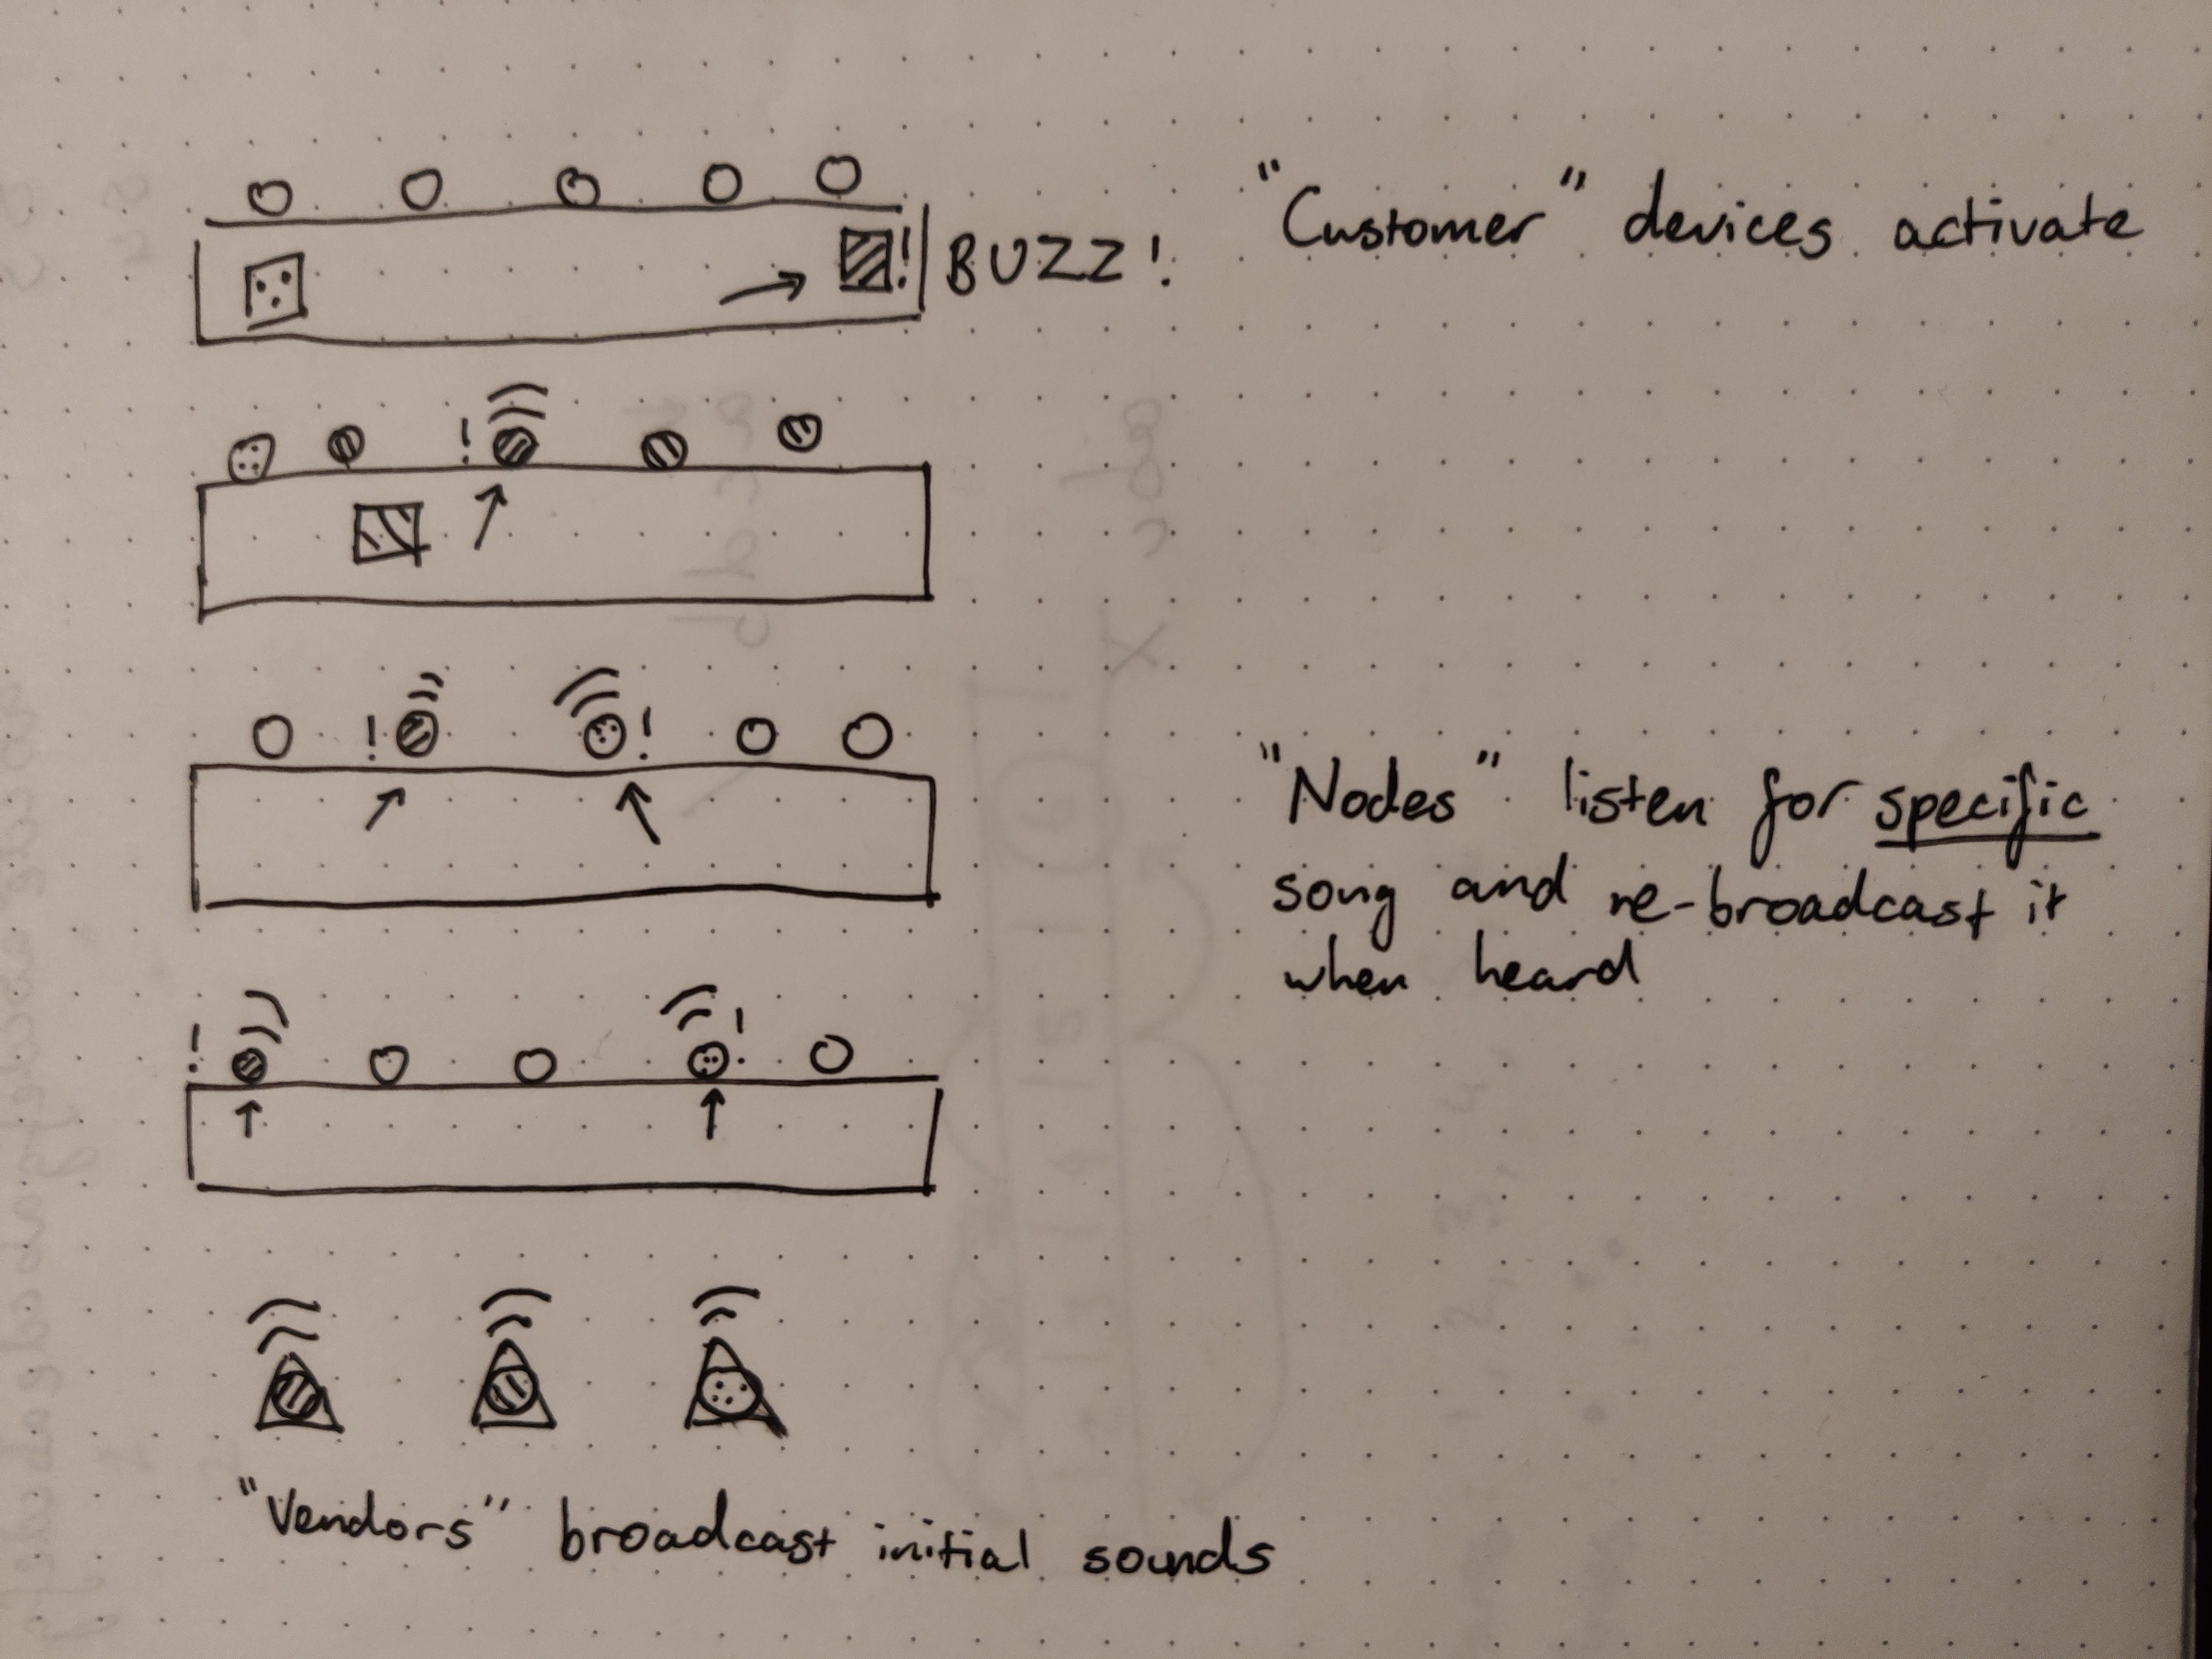 "Customer" devices activate
! BUZZ!
!
! !
"Nodes" listen for specific
song and re-broadcast it
when heard
! !
"Vendors" broadcast initial sounds